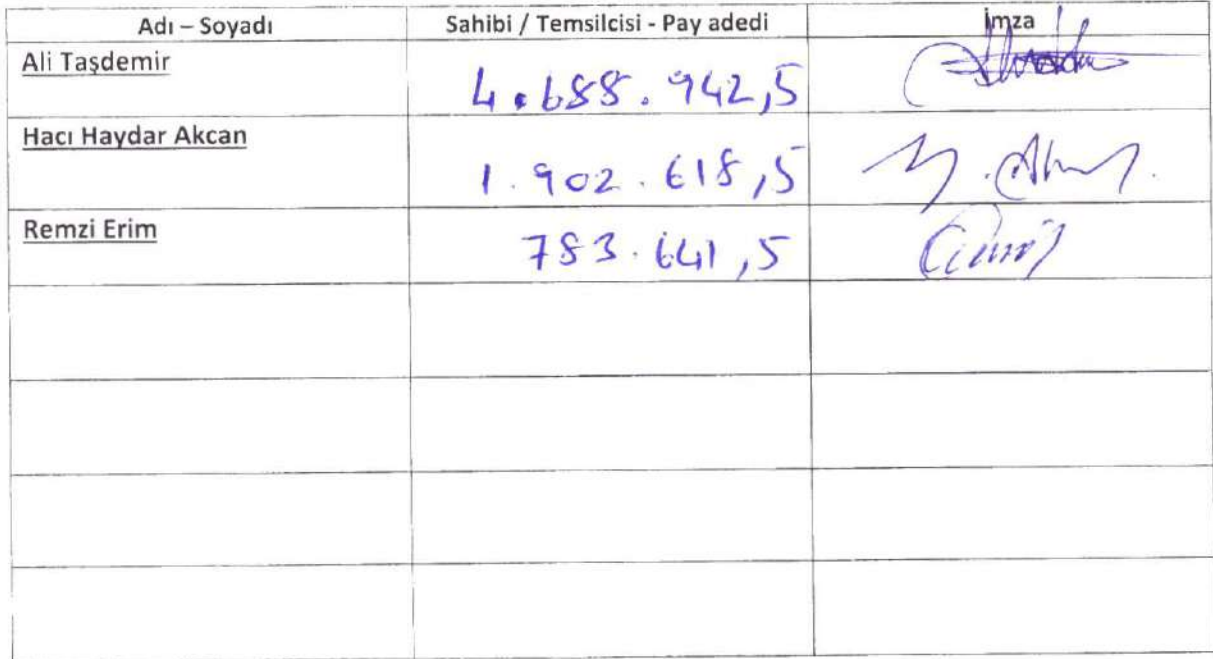 Adı – Soyadı Sahibi / Temsilcisi - Pay adedi İmza
Ali Taşdemir 4.688.942,5
Hacı Haydar Akcan 1.902.618,5
Remzi Erim 783.641,5